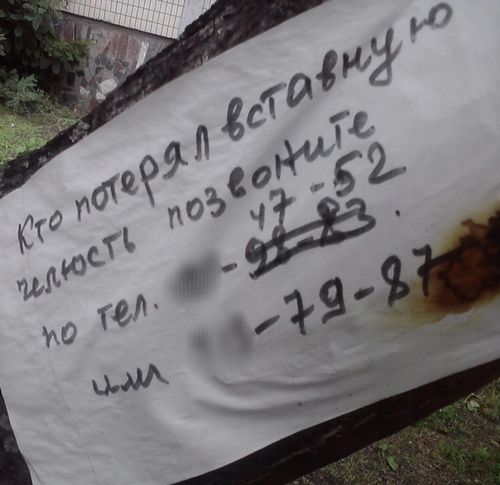 Кто потерял вставную
челюсть позвоните
47-52
по тел. -98-83.
или -79-87